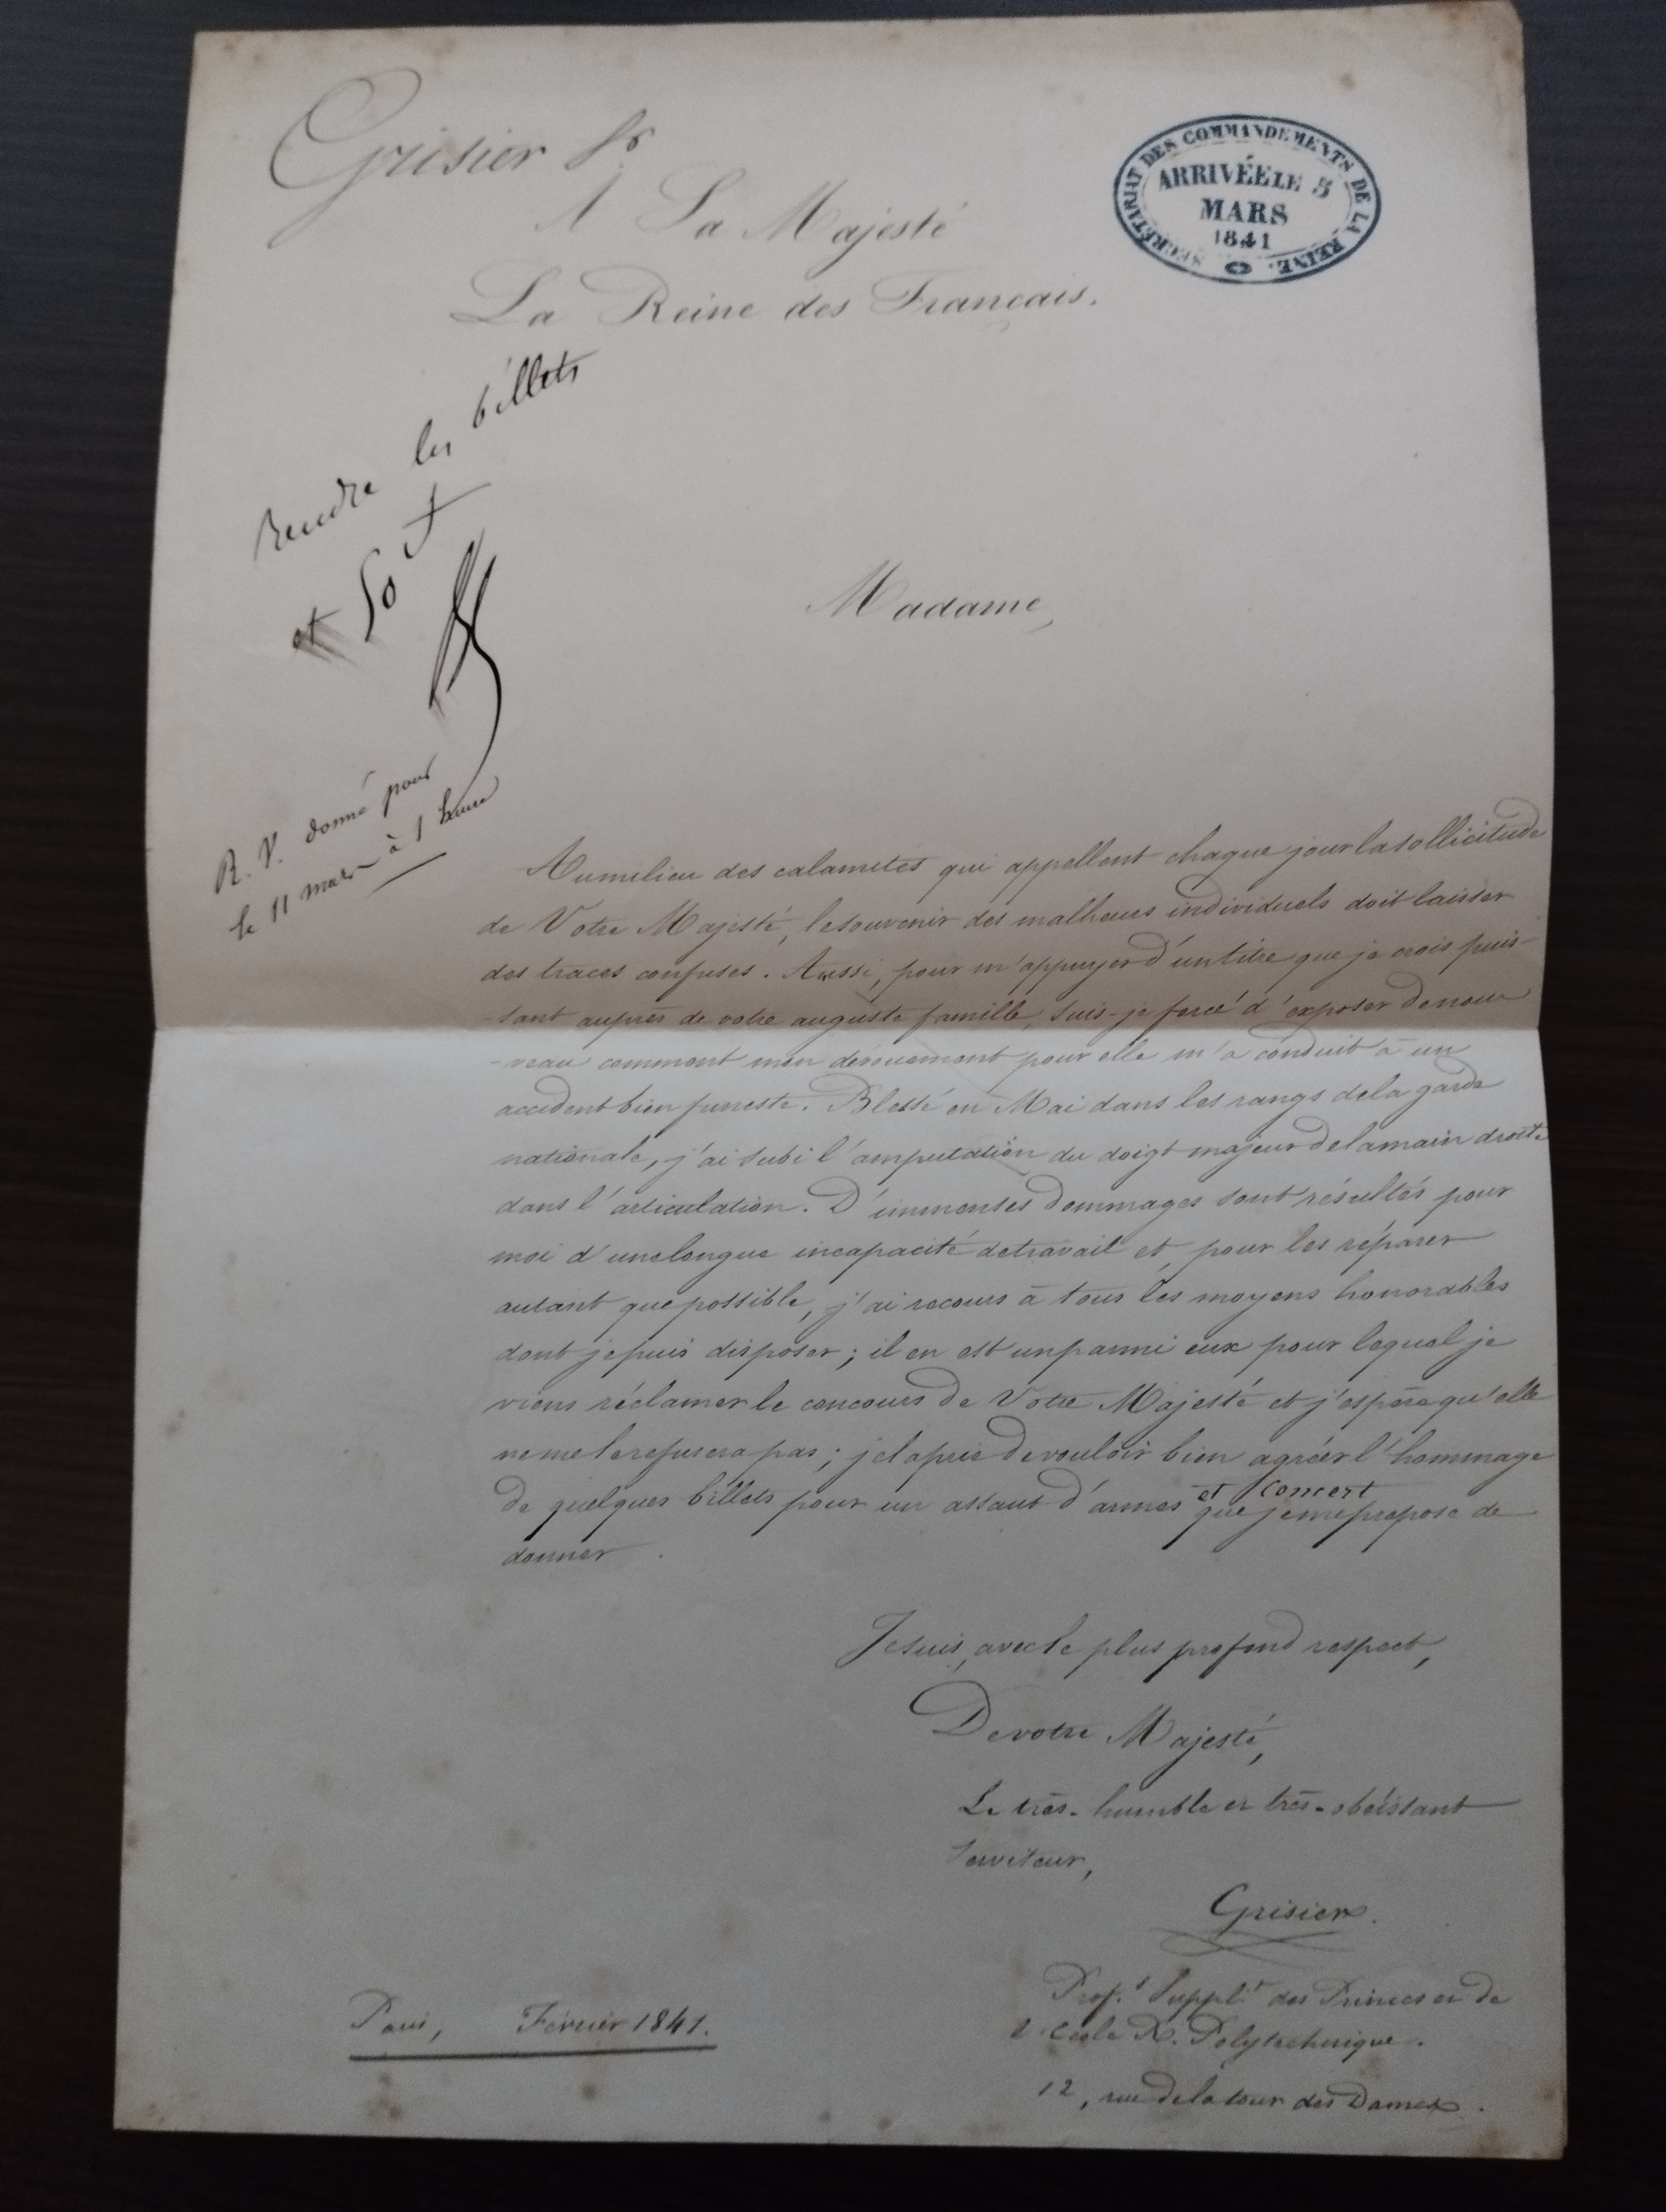 Grisier
SECRÉTARIAT DES COMMANDEMENTS DE LA REINE.
ARRIVÉE LE 5
MARS
1841
A Sa Majesté
La Reine des Français.
Rendre les billets
et 50 f
R. V. donné pour
le 11 mars à 1 heure
Madame,
Au milieu des calamités qui appellent chaque jour la sollicitude
de Votre Majesté, le souvenir des malheurs individuels doit laisser
des traces confuses. Aussi, pour m'appuyer d'un titre que je crois puis-
-sant auprès de votre auguste famille, suis-je forcé d'exposer de nou-
-veau comment mon dévouement pour elle m'a conduit à un
accident bien funeste. Blessé en Mai dans les rangs de la garde
nationale, j'ai subi l'amputation du doigt majeur de la main droite
dans l'articulation. D'immenses dommages sont résultés pour
moi d'une longue incapacité de travail et, pour les réparer
autant que possible, j'ai recours à tous les moyens honorables
dont je puis disposer; il en est un parmi eux pour lequel je
viens réclamer le concours de Votre Majesté et j'espère qu'elle
ne me le refusera pas; je la prie de vouloir bien agréer l'hommage
de quelques billets pour un assaut d'armes et concert que je me propose de
donner.
Je suis, avec le plus profond respect,
De votre Majesté,
Le très-humble et très-obéissant
serviteur,
Grisier.
Prof.r Suppl.t des Princes et de
l'école R. Polytechnique.
12, rue de la tour des Dames.
Paris, Février 1841.